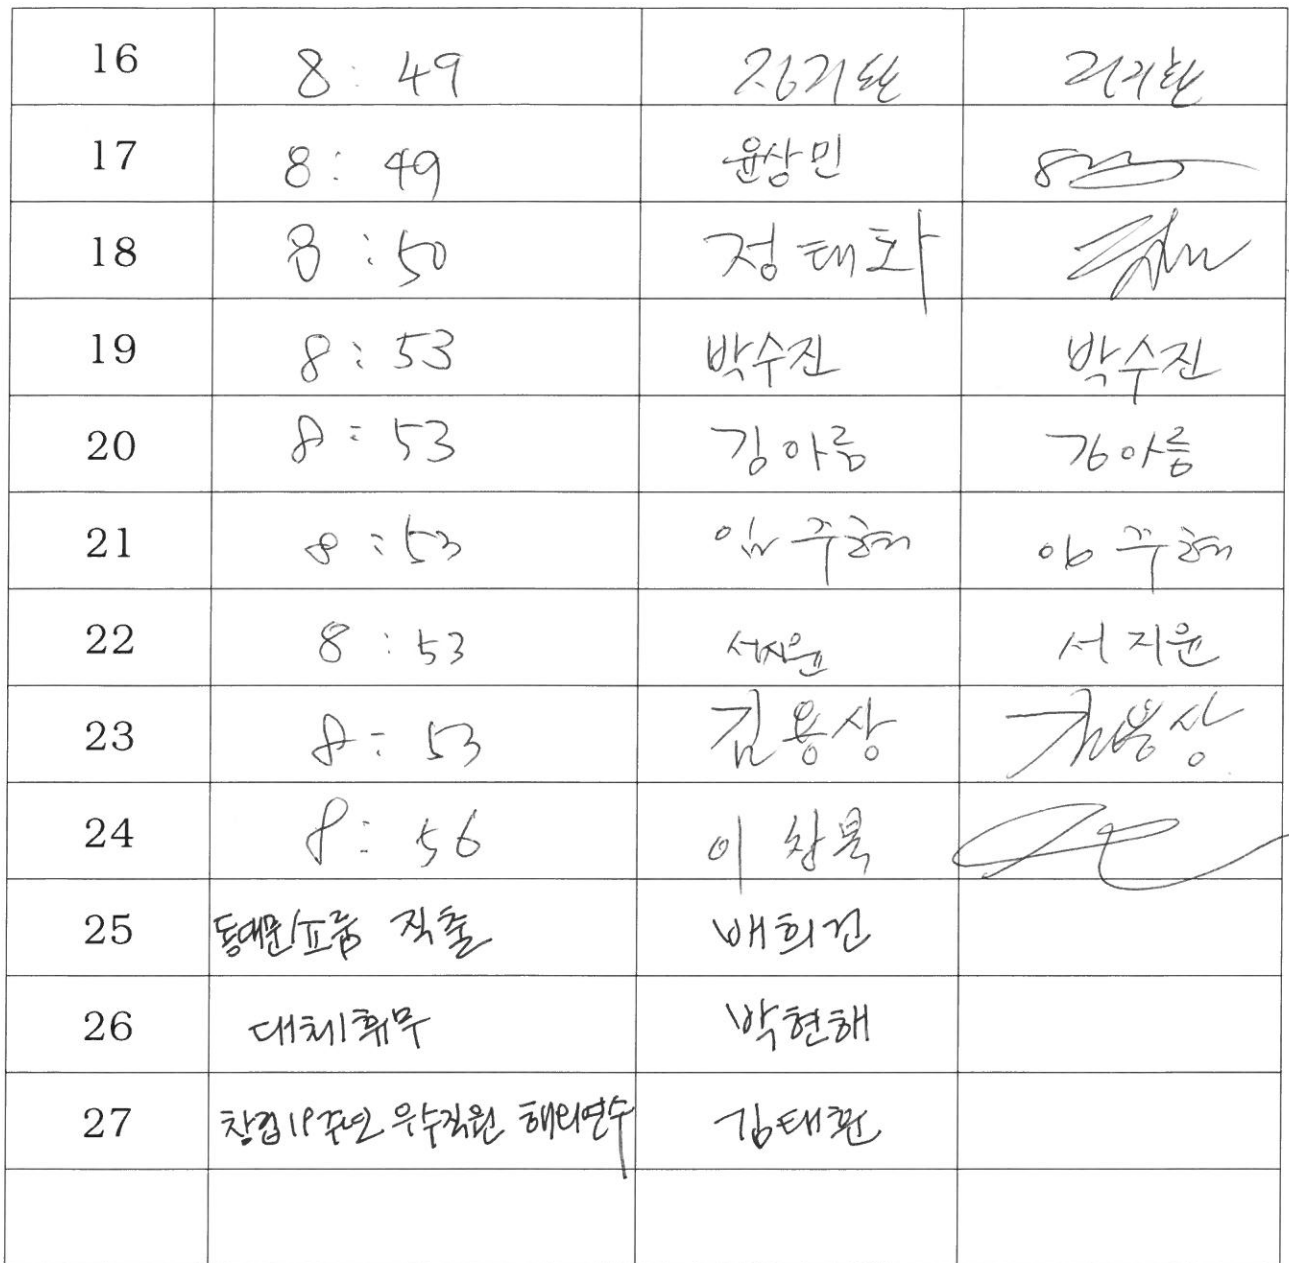 16 8:49 정기환 정기환
17 8:49 윤상민
18 8:50 정태화
19 8:53 박수진 박수진
20 8:53 김아름 김아름
21 8:53 임주혜 임주혜
22 8:53 서지윤 서지윤
23 8:53 김용상 김용상
24 8:56 이창복
25 동대문쇼룸 직출 배희건
26 대체휴무 박현해
27 창립19주년 우수직원 해외연수 김태환